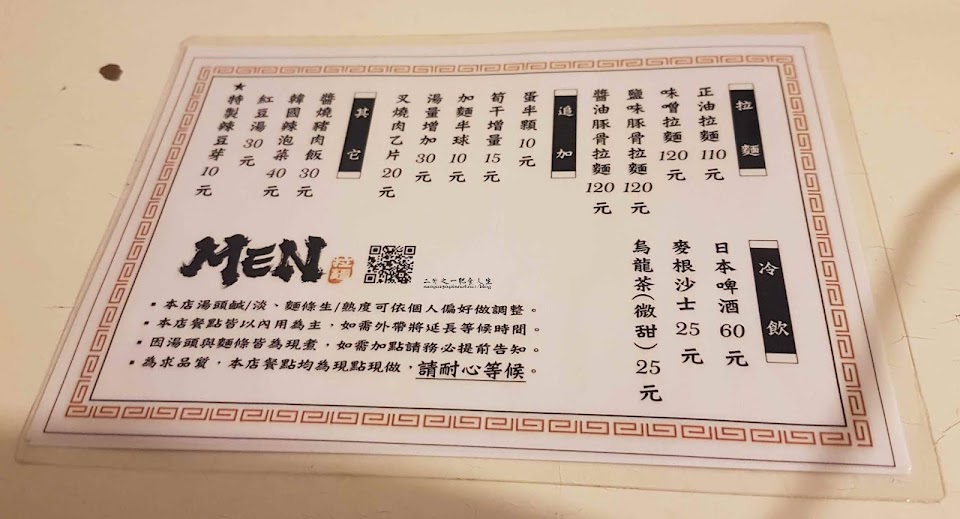 拉麵
正油拉麵 110 元
味噌拉麵 120 元
鹽味豚骨拉麵 120 元
醬油豚骨拉麵 120 元
追加
蛋半顆 10 元
筍干增量 15 元
加麵半球 10 元
湯量增加 30 元
叉燒肉乙片 20 元
其它
醬燒豬肉飯 30 元
韓國辣泡菜 40 元
紅豆湯 30 元
★特製辣豆芽 10 元
冷飲
日本啤酒 60 元
麥根沙士 25 元
烏龍茶(微甜) 25 元
MEN
拉麵
二分之一肥食人生
▪ 本店湯頭鹹/淡、麵條生/熟度可依個人偏好做調整。
▪ 本店餐點皆以內用為主，如需外帶將延長等候時間。
▪ 因湯頭與麵條皆為現煮，如需加點請務必提前告知。
▪ 為求品質，本店餐點均為現點現做，請耐心等候。